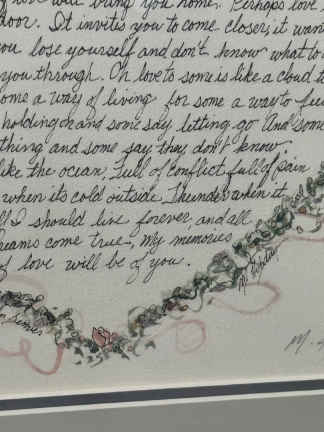 will bring you home. Perhaps love
door. It invites you to come closer, it want
you lose yourself and don't know what to
you through. Oh love to some is like a cloud t
ome a way of living for some a way to fee
holding on and some say letting go And som
thing and some say they don't know.
like the ocean, Full of conflict full of pain
when its cold outside, Thunder when it
If I should live forever, and all
reams come true, My memories
f love will be of you.
M.